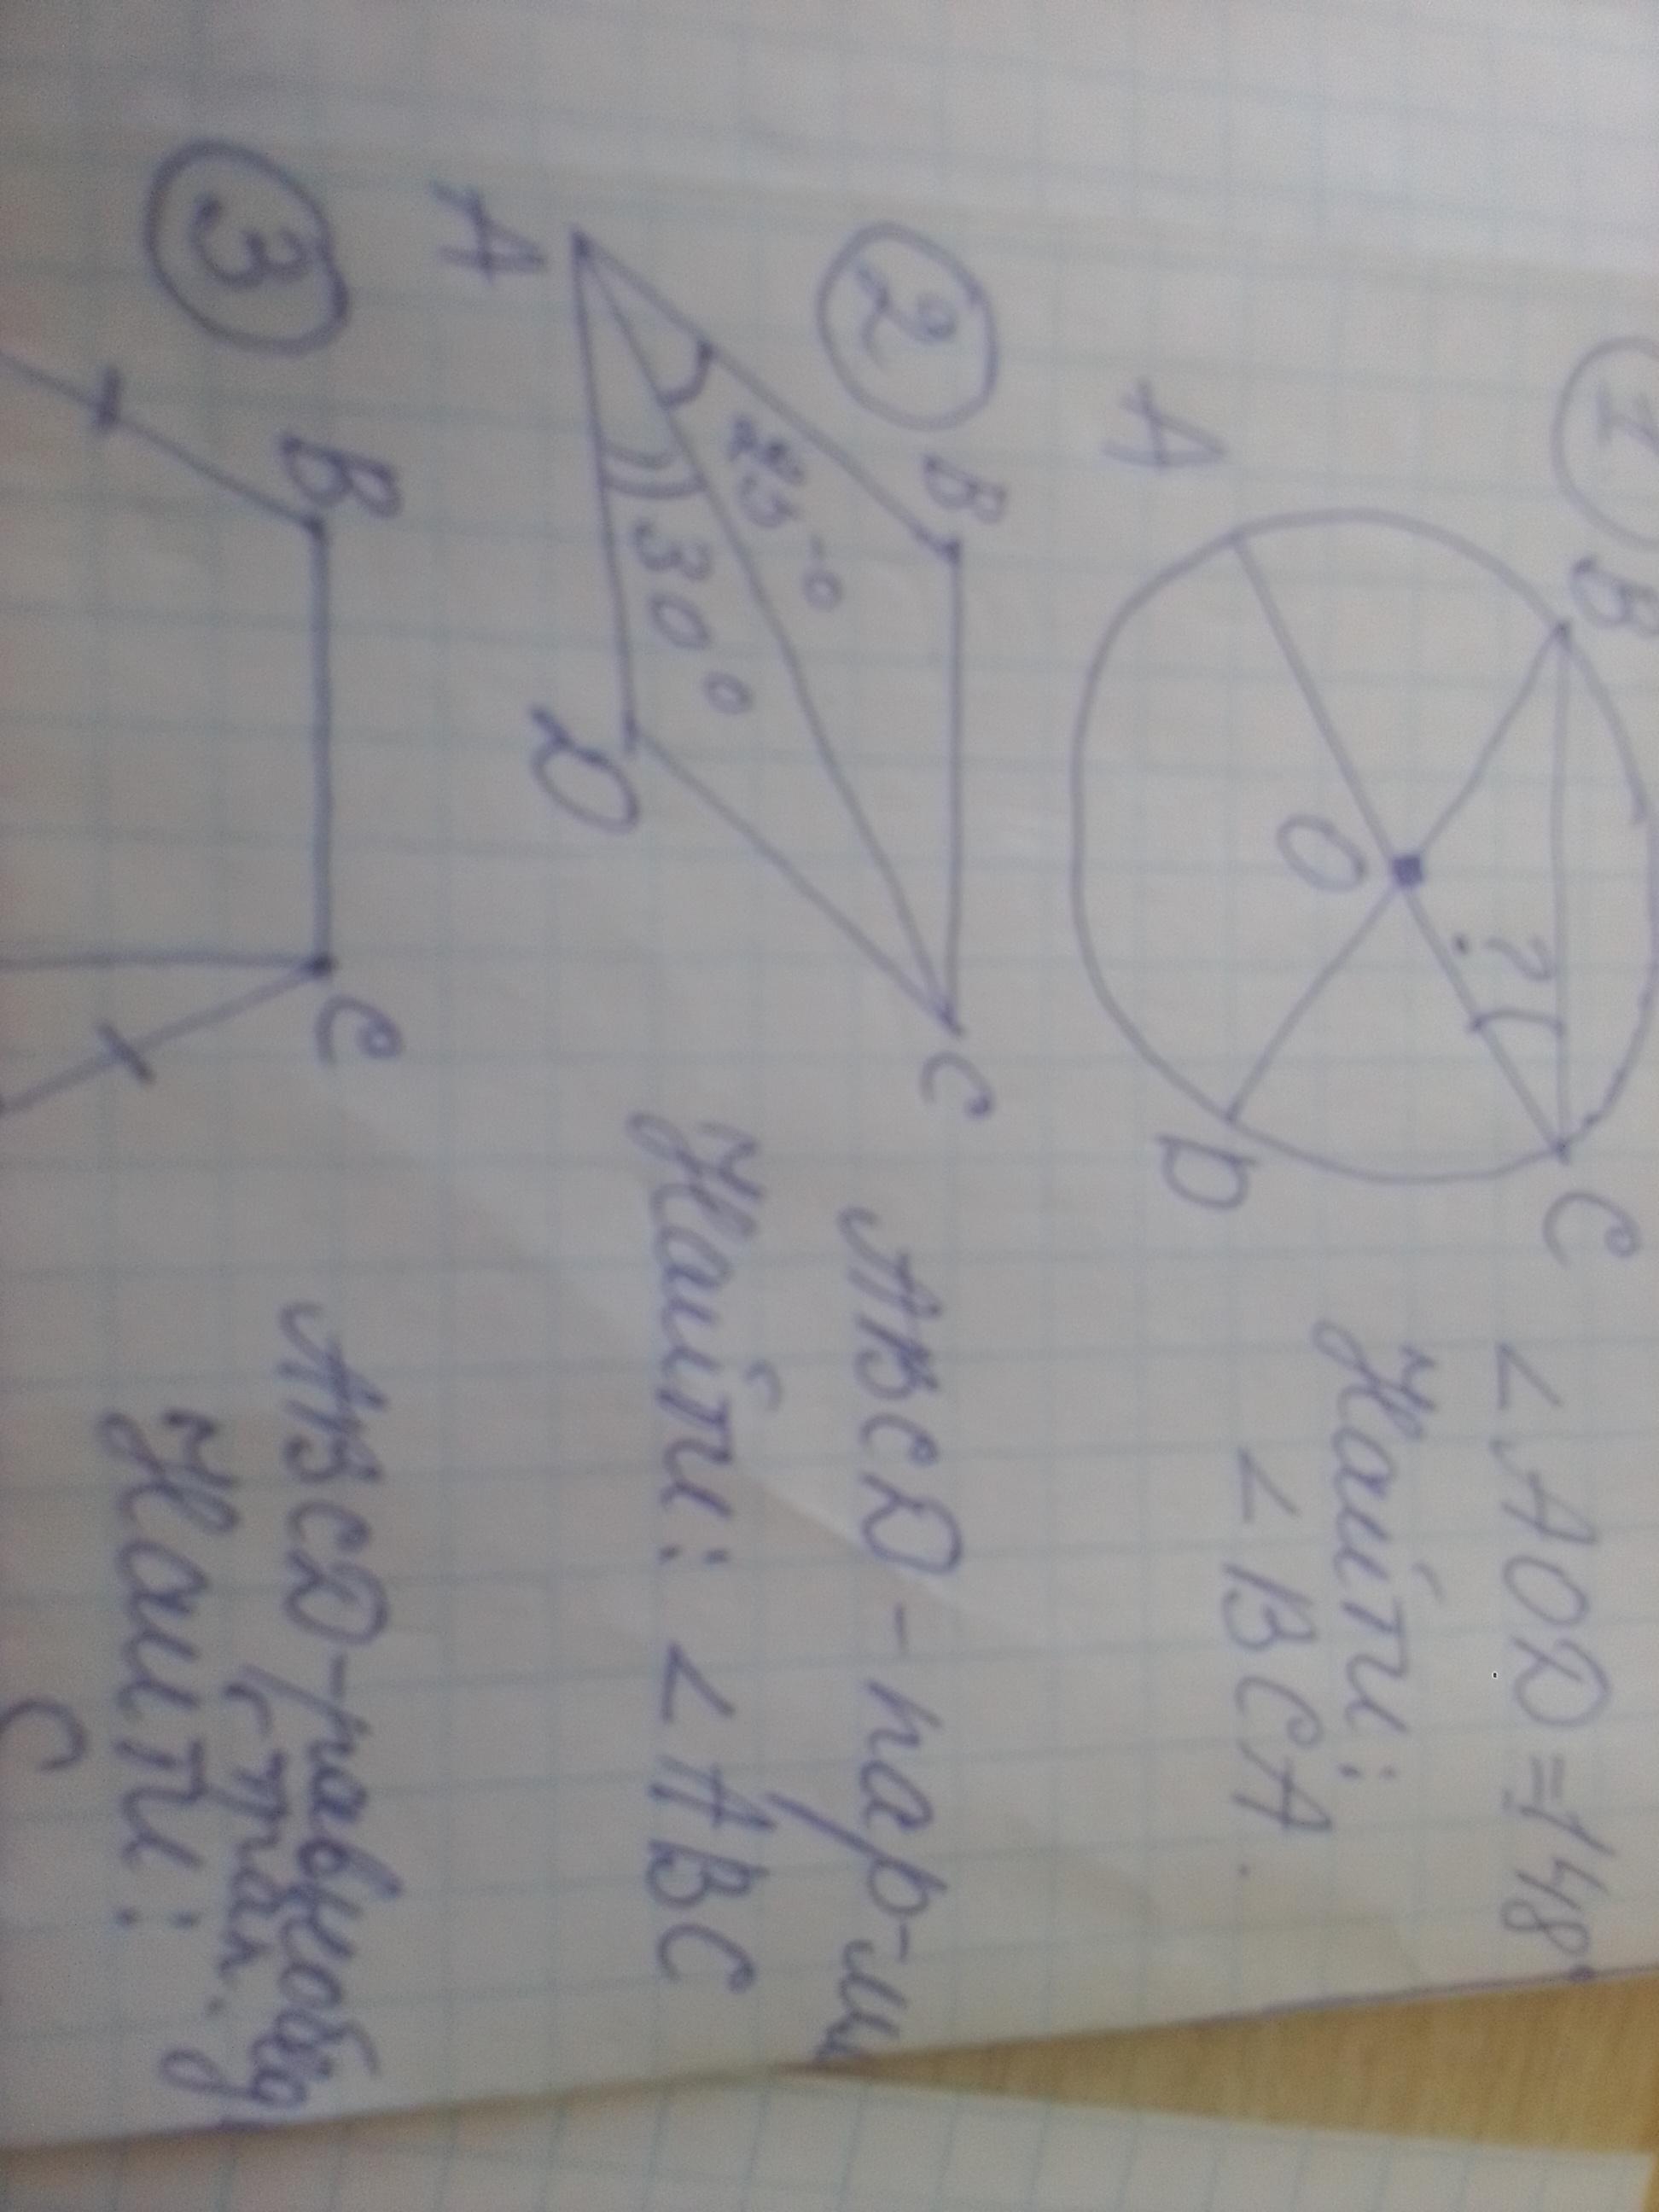 1
B
C
A
O
?
D
∠AOD=148°
Найти:
∠BCA.
2
B
C
A
30°
D
ABCD - пар-м
Найти: ∠ABC
3
B
C
ABCD - равнобед.
трап.
Найти: